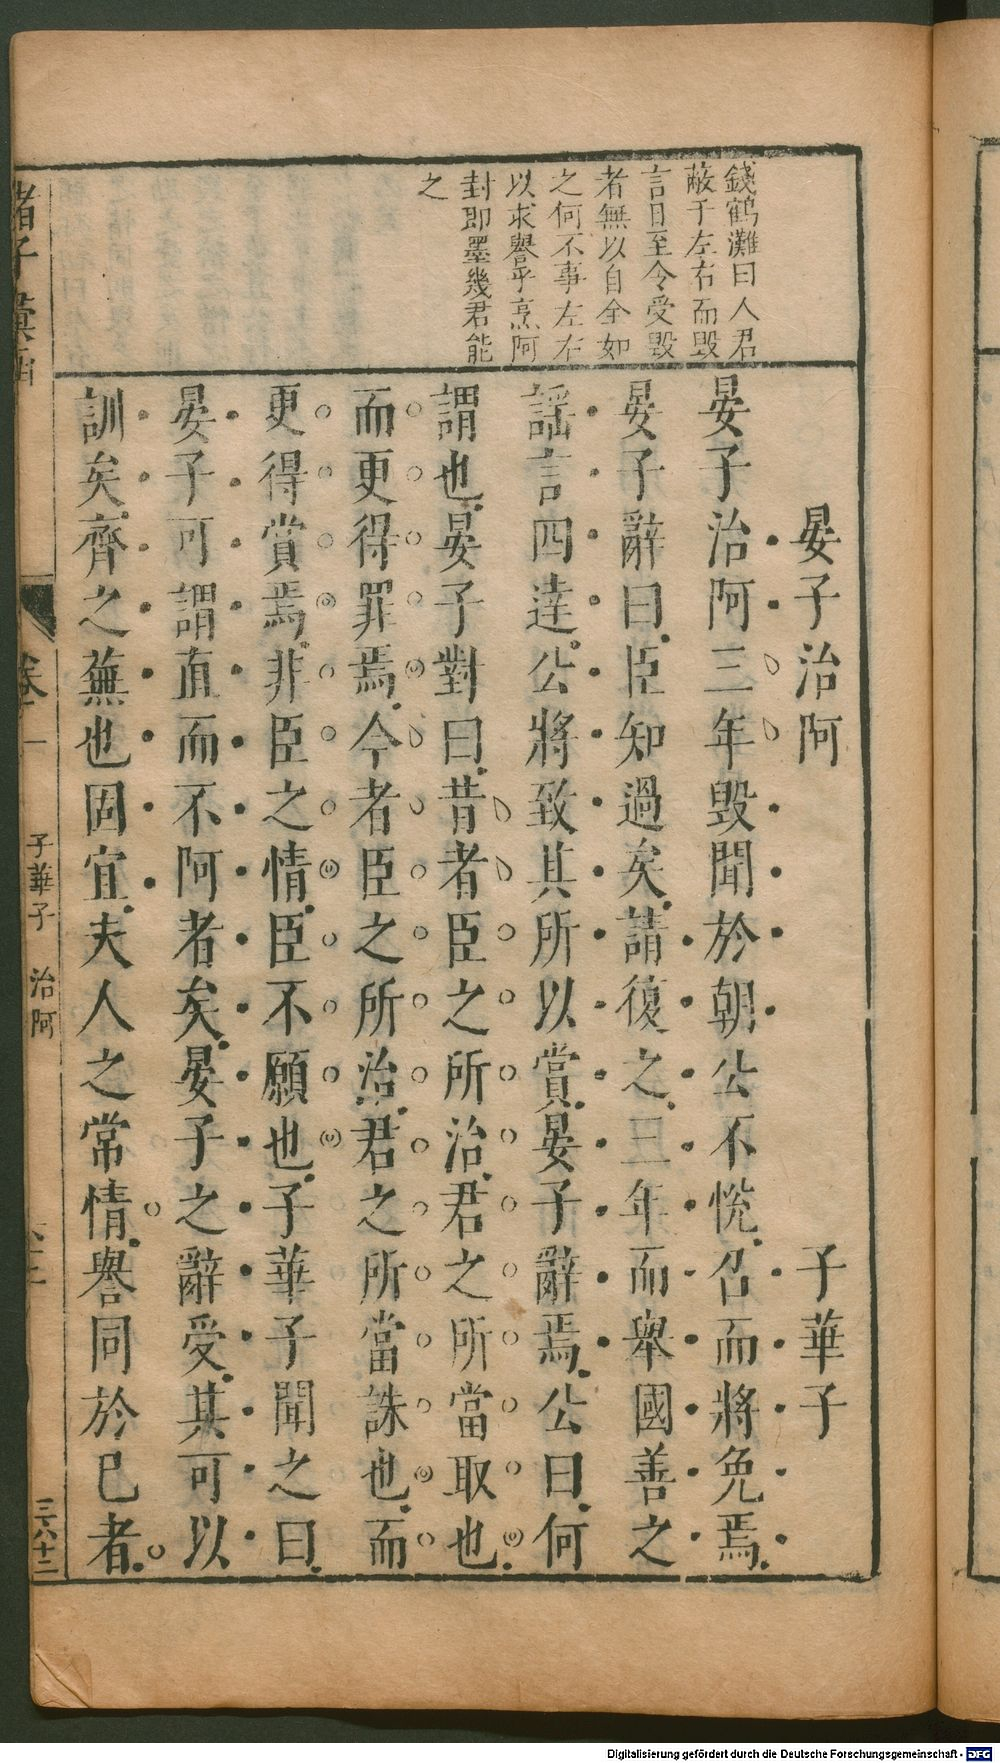 錢鶴灘曰人君
蔽于左右而毀
言日至令受毀
者無以自全如
之何不事左右
以求譽乎烹阿
封即墨幾君能
之
晏子治阿 子華子
晏子治阿三年毀聞於朝公不悅召而將免焉
晏子辭曰臣知過矣請復之三年而舉國善之
謡言四達公將致其所以賞晏子辭焉公曰何
謂也晏子對曰昔者臣之所治君之所當取也
而更得罪焉今者臣之所治君之所當誅也而
更得賞焉非臣之情臣不願也子華子聞之曰
晏子可謂直而不阿者矣晏子之辭受其可以
訓矣齊之蕪也固宜夫人之常情譽同於己者
卷 一 子華子 治阿 三六十二
Digitalisierung gefördert durch die Deutsche Forschungsgemeinschaft - DFG